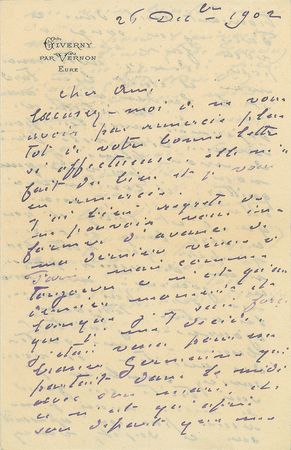 26 Décbre 1902
GIVERNY
PAR VERNON
EURE
cher ami
Excusez-moi de ne vous
avoir pas remercié plus
tot de votre bonne lettre
si affectueuse elle m'a
fait du bien et je vous
en remercie.
J'ai bien regretté de
ne pouvoir vous in
former d'avance de
ma dernière venue à
Paris, mais comme
toujours ce n'est qu'au
dernier moment et
lorsque j'y suis forcé
que je me décide.
J'étais venu pour
Germaine qui
partait dans le midi
avec son mari, et
ce n'est qu'après
son départ que